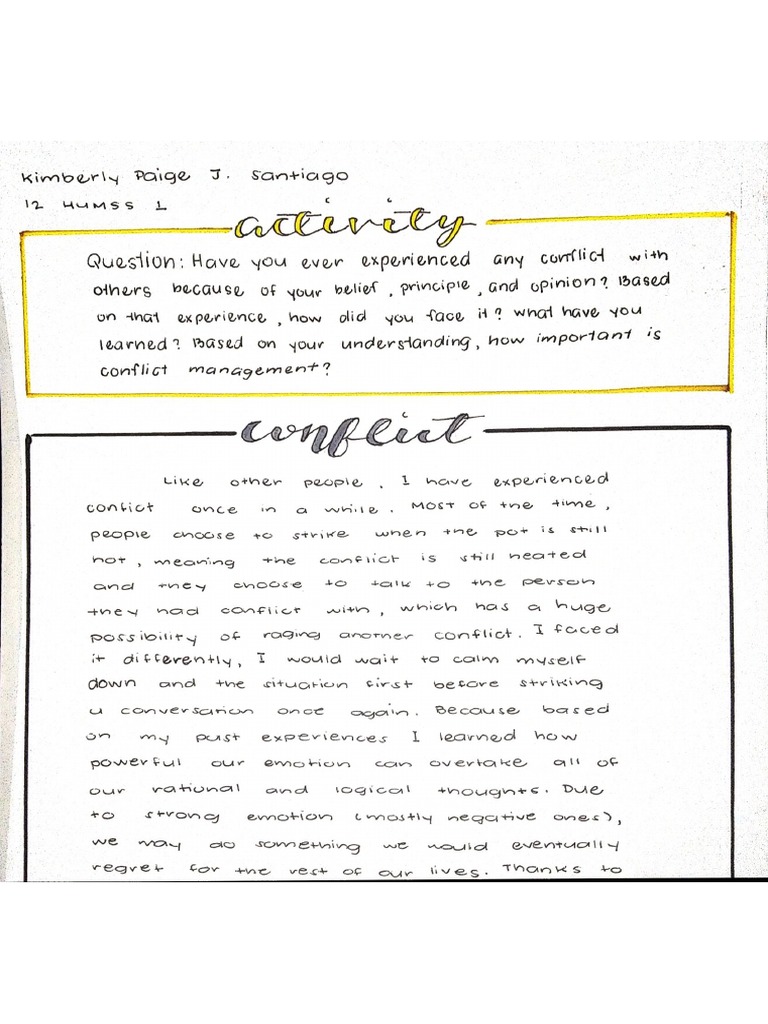 Kimberly Paige J. Santiago
12 HUMSS 1
activity
Question: Have you ever experienced any conflict with
others because of your belief, principle, and opinion? Based
on that experience, how did you face it? What have you
learned? Based on your understanding, how important is
conflict management?
conflict
Like other people, I have experienced
confict once in a while. Most of the time,
people choose to strike when the pot is still
hot, meaning the conflict is still heated
and they choose to talk to the person
they had conflict with, which has a huge
possibility of raging another conflict. I faced
it differently, I would wait to calm myself
down and the situation first before striking
a conversation once again. Because based
on my past experiences I learned how
powerful our emotion can overtake all of
our rational and logical thoughts. Due
to strong emotion (mostly negative ones),
we may do something we would eventually
regret for the rest of our lives. Thanks to